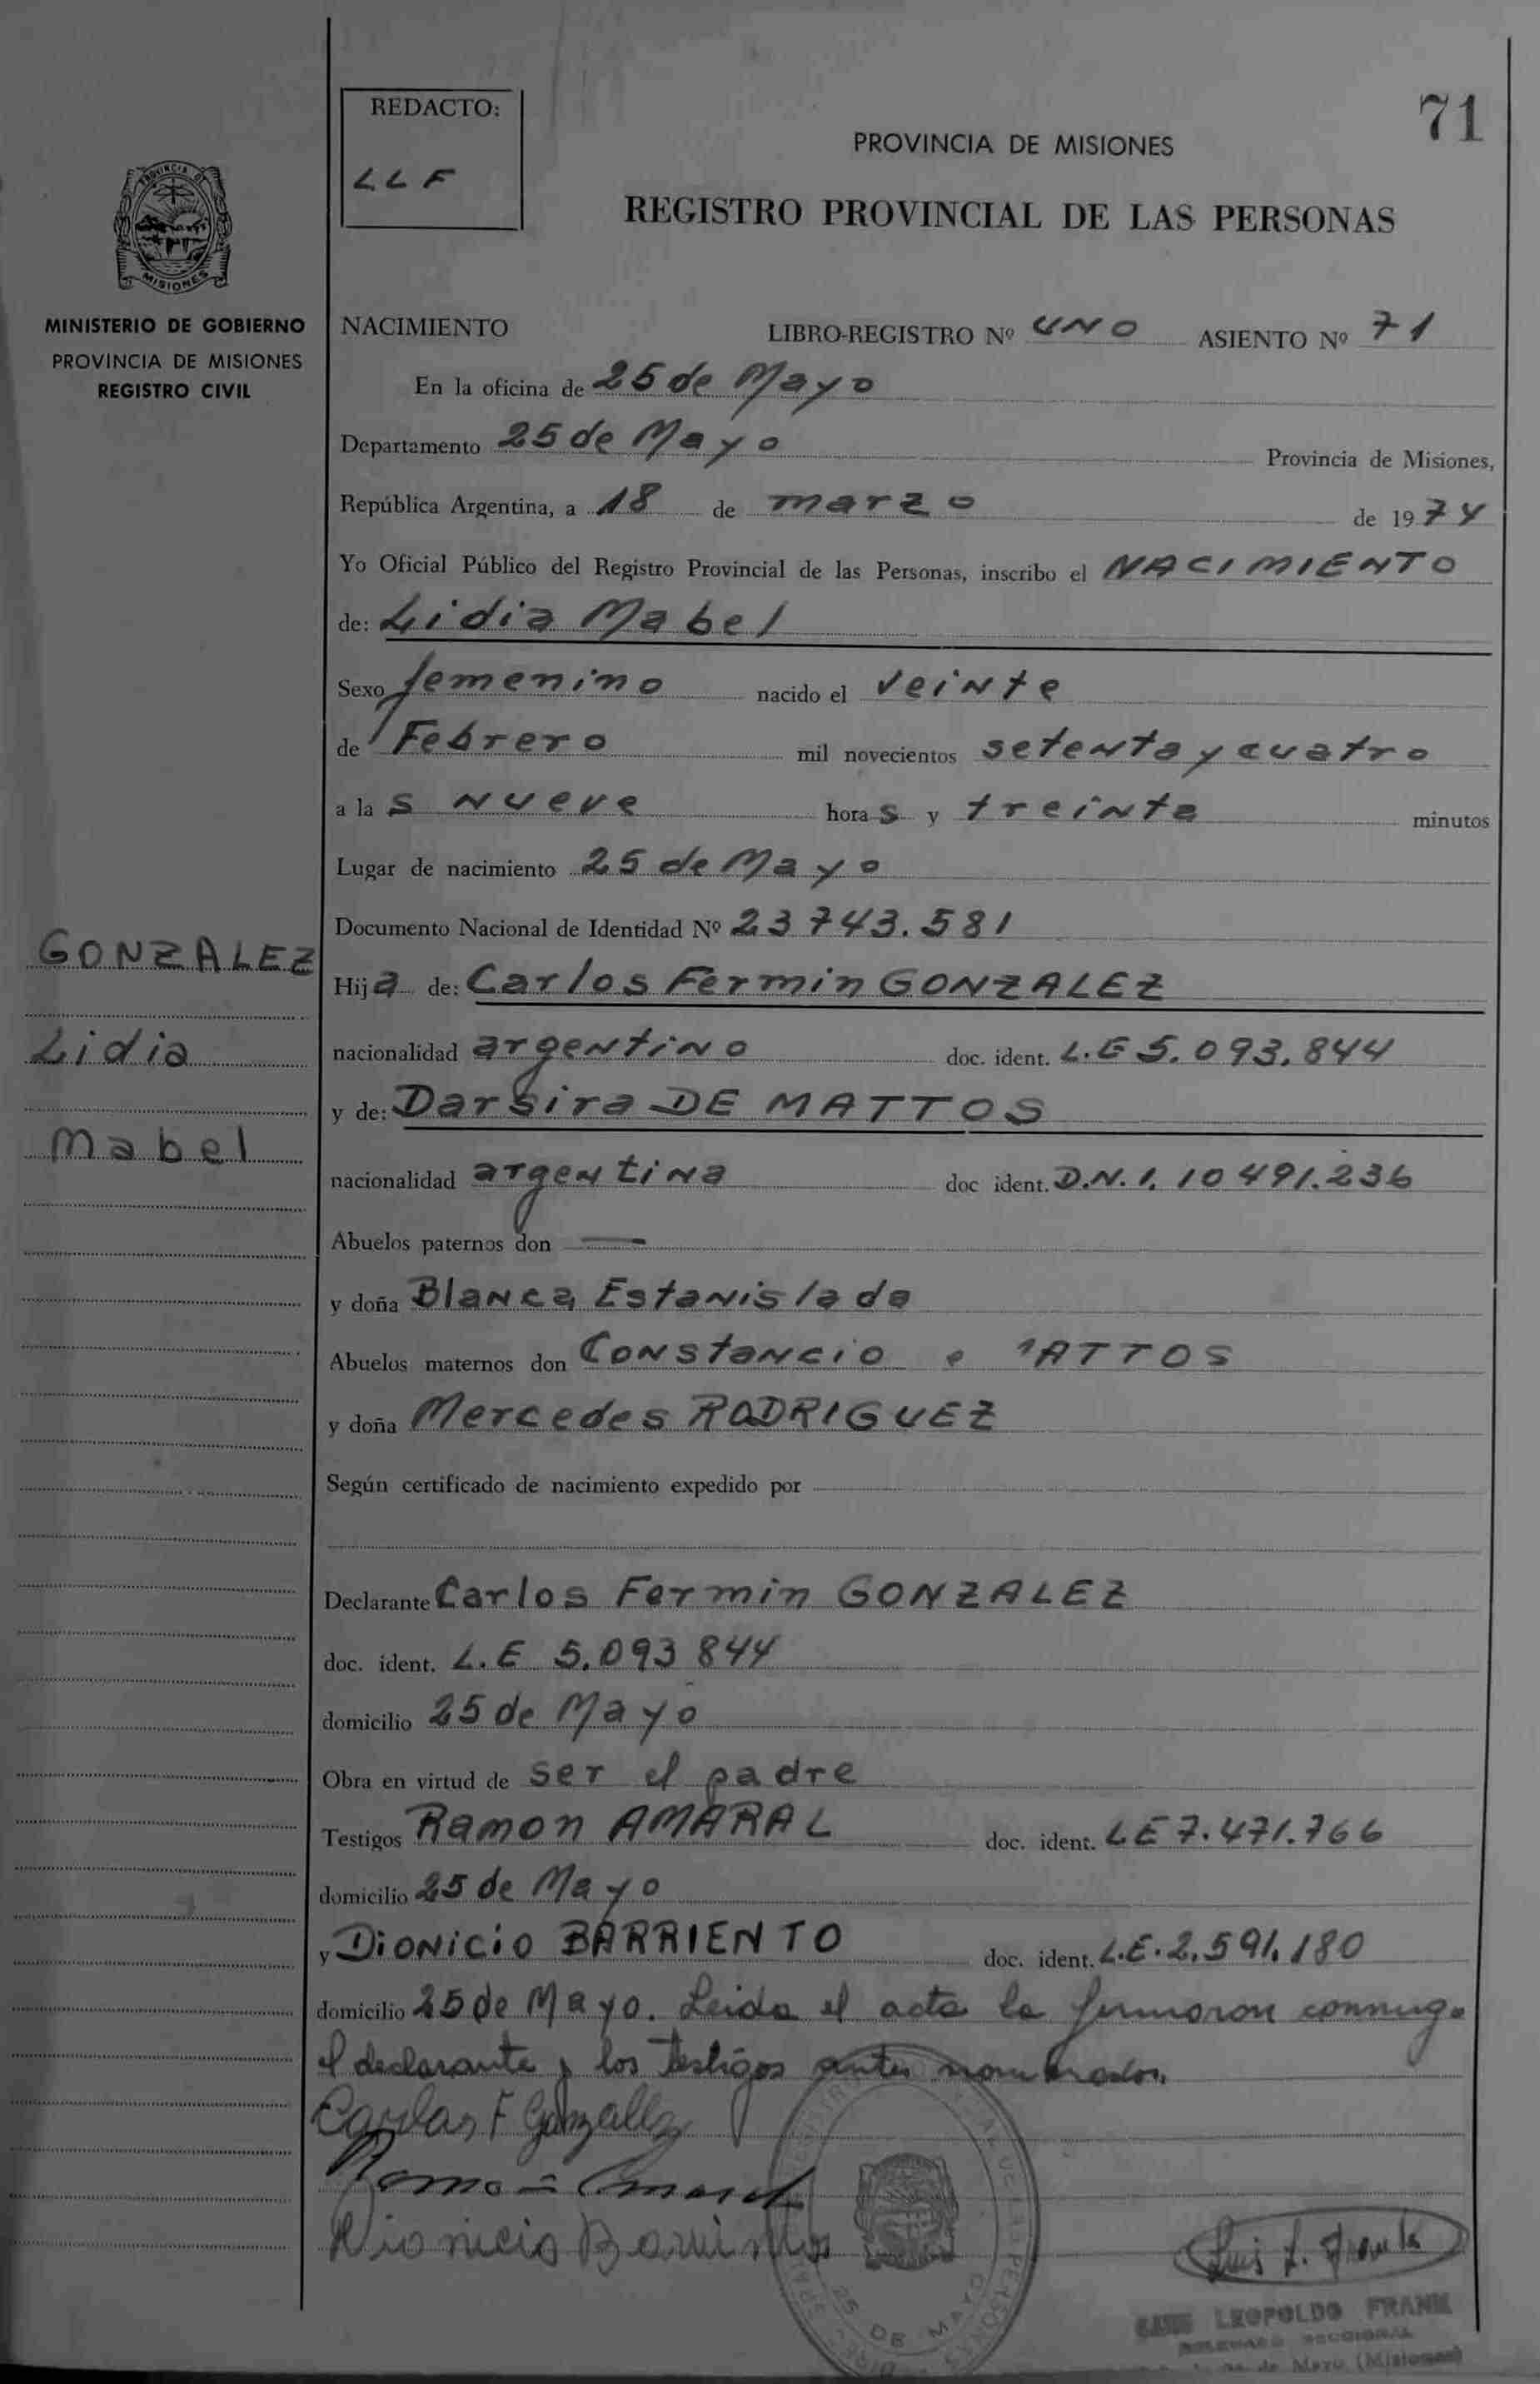 71
REDACTO:
LLF
PROVINCIA DE MISIONES
REGISTRO PROVINCIAL DE LAS PERSONAS
PROVINCIA DE
MISIONES
MINISTERIO DE GOBIERNO
PROVINCIA DE MISIONES
REGISTRO CIVIL
GONZALEZ
Lidia
Mabel
NACIMIENTO LIBRO-REGISTRO Nº UNO ASIENTO Nº 71
En la oficina de 25 de Mayo
Departamento 25 de Mayo Provincia de Misiones,
República Argentina, a 18 de marzo de 1974
Yo Oficial Público del Registro Provincial de las Personas, inscribo el NACIMIENTO
de: Lidia Mabel
Sexo femenino nacido el veinte
de Febrero mil novecientos setenta y cuatro
a la s nueve hora s y treinta minutos
Lugar de nacimiento 25 de Mayo
Documento Nacional de Identidad Nº 23 743.581
Hij a de: Carlos Fermin GONZALEZ
nacionalidad argentino doc. ident. L.E 5.093.844
y de: Darsira DE MATTOS
nacionalidad argentina doc ident. D.N.I. 10 491.236
Abuelos paternos don —
y doña Blanca Estanislada
Abuelos maternos don Constancio ATTOS
y doña Mercedes RODRIGUEZ
Según certificado de nacimiento expedido por
Declarante Carlos Fermin GONZALEZ
doc. ident. L.E 5.093 844
domicilio 25 de Mayo
Obra en virtud de ser el padre
Testigos Ramon AMARAL doc. ident. LE 7.471.766
domicilio 25 de Mayo
y Dionicio BARRIENTO doc. ident. L.E. 2.591.180
domicilio 25 de Mayo. Leida el acta la firmaron conmigo
el declarante y los testigos antes nombrados.
Carlos F Gonzallez
Ramon Amaral
Dionicio Barriento
25 DE MAYO
Luis L. Frank
LUIS LEOPOLDO FRANK
DELEGADO SECCIONAL
25 de Mayo (Misiones)